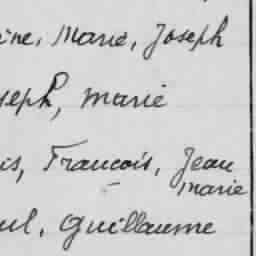 ine, Marie, Joseph
seph, Marie
is, Francois, Jean
Marie
ul, Guillaume